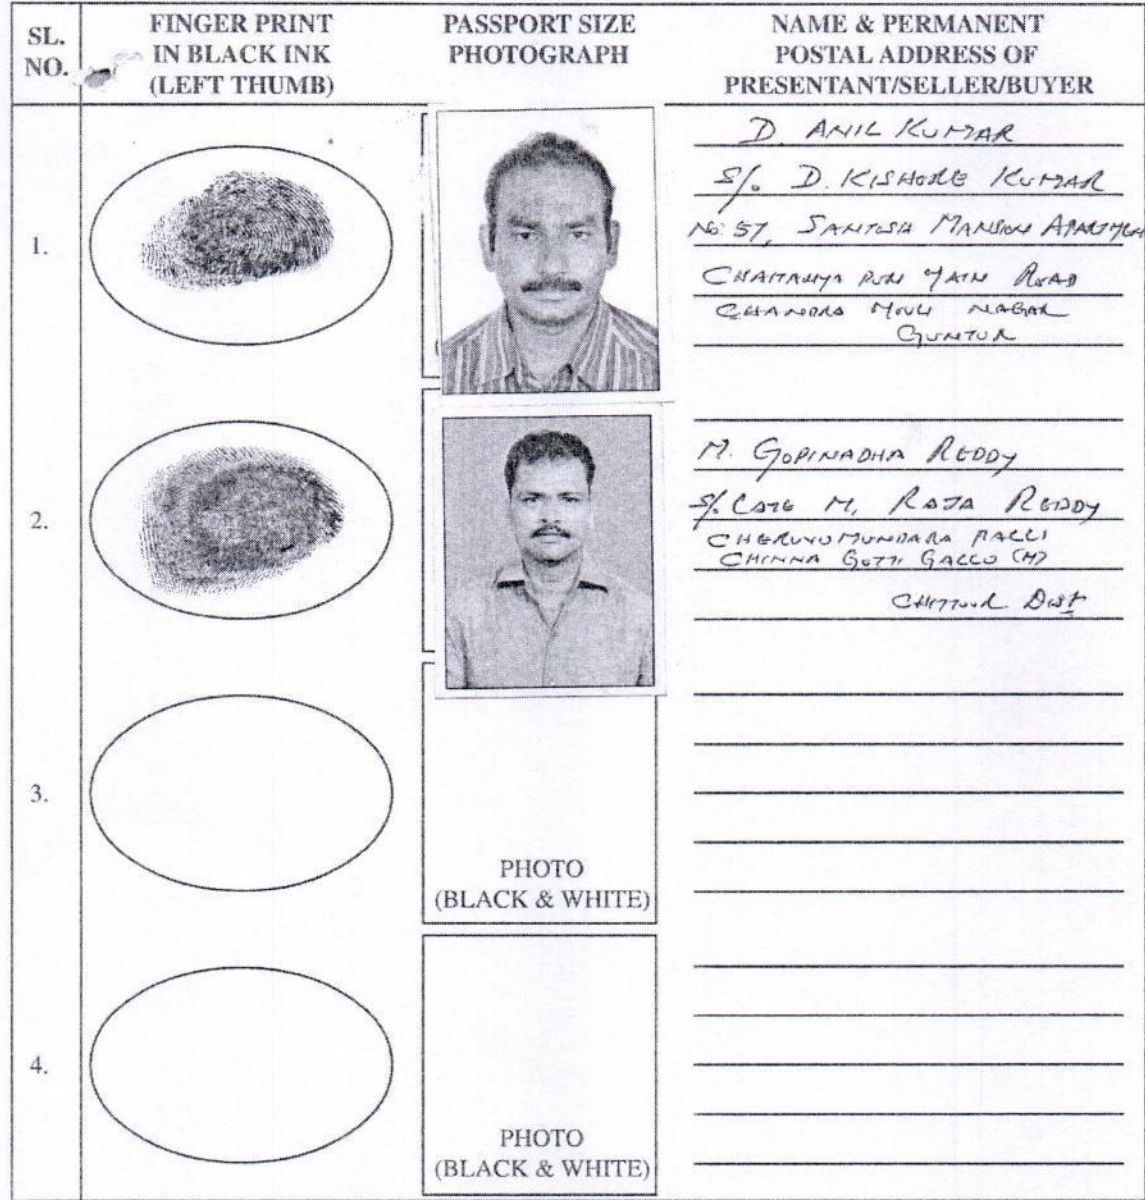 SL. NO.
FINGER PRINT IN BLACK INK (LEFT THUMB)
PASSPORT SIZE PHOTOGRAPH
NAME & PERMANENT POSTAL ADDRESS OF PRESENTANT/SELLER/BUYER
1.
D. ANIL KUMAR
S/o D. KISHORE KUMAR
No: 57, SANTOSH MANSION
MAIN ROAD
CHANDRA MOULI NAGAR
GUNTUR
2.
M. GOPINADHA REDDY
S/o LATE M. RAJA REDDY
CHINNA GOTTI GALLU (M)
CHITTOOR Dist
3.
PHOTO
(BLACK & WHITE)
4.
PHOTO
(BLACK & WHITE)